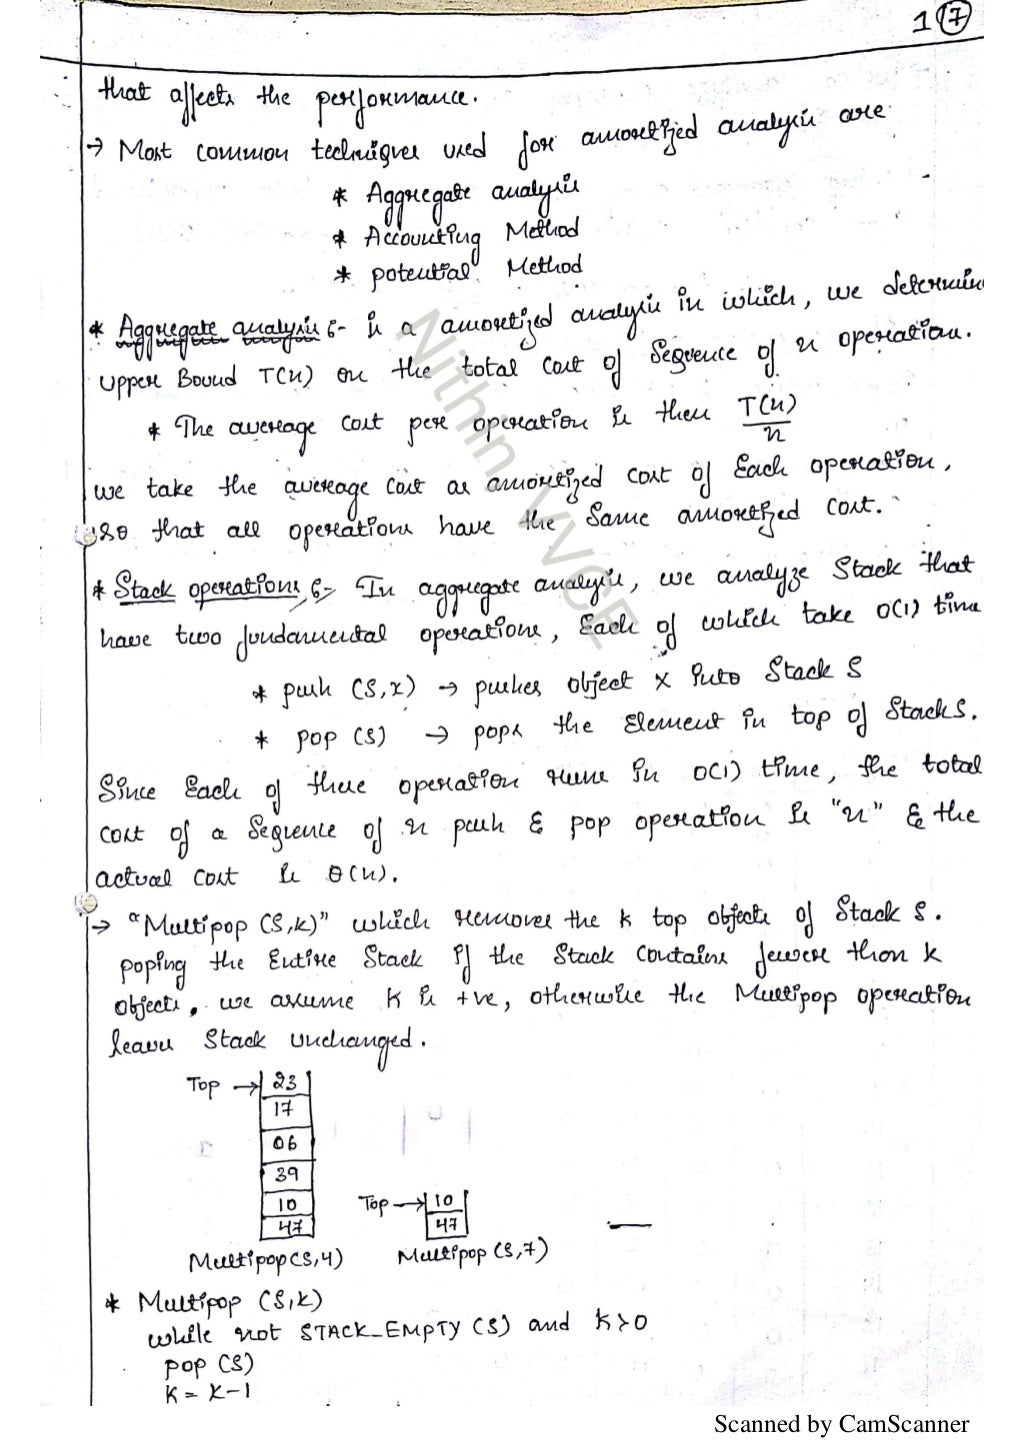 1 (7)
that affects the performance.
→ Most common techniques used for amortized analysis are
* Aggregate analysis
* Accounting Method
* potential Method
* Aggregate analysis :- is a amortized analysis in which, we determine
upper Bound T(n) on the total cost of Sequence of n operation.
* The average cost per operation is then T(n)/n
we take the average cost as amortized cost of Each operation,
so that all operations have the Same amortized cost.
* Stack operations :- In aggregate analysis, we analyze Stack that
have two fundamental operations, Each of which take O(1) time
* push (S,x) → pushes object x into Stack S
* pop (S) → pops the Element in top of Stack S.
Since Each of these operation runs in O(1) time, the total
cost of a Sequence of n push & pop operation is "n" & the
actual cost is θ(n).
→ "Multipop (S,k)" which removes the k top objects of Stack S.
poping the Entire Stack if the Stack contains fewere than k
objects. we assume K is +ve, otherwise the Multipop operation
leaves Stack unchanged.
Top → 23
17
06
39
10
47
Top → 10
47
Multipop(S,4)
Multipop (S,7)
* Multipop (S,k)
while not STACK_EMPTY (S) and K>0
pop (S)
K = K-1
Nithin VVCE
Scanned by CamScanner